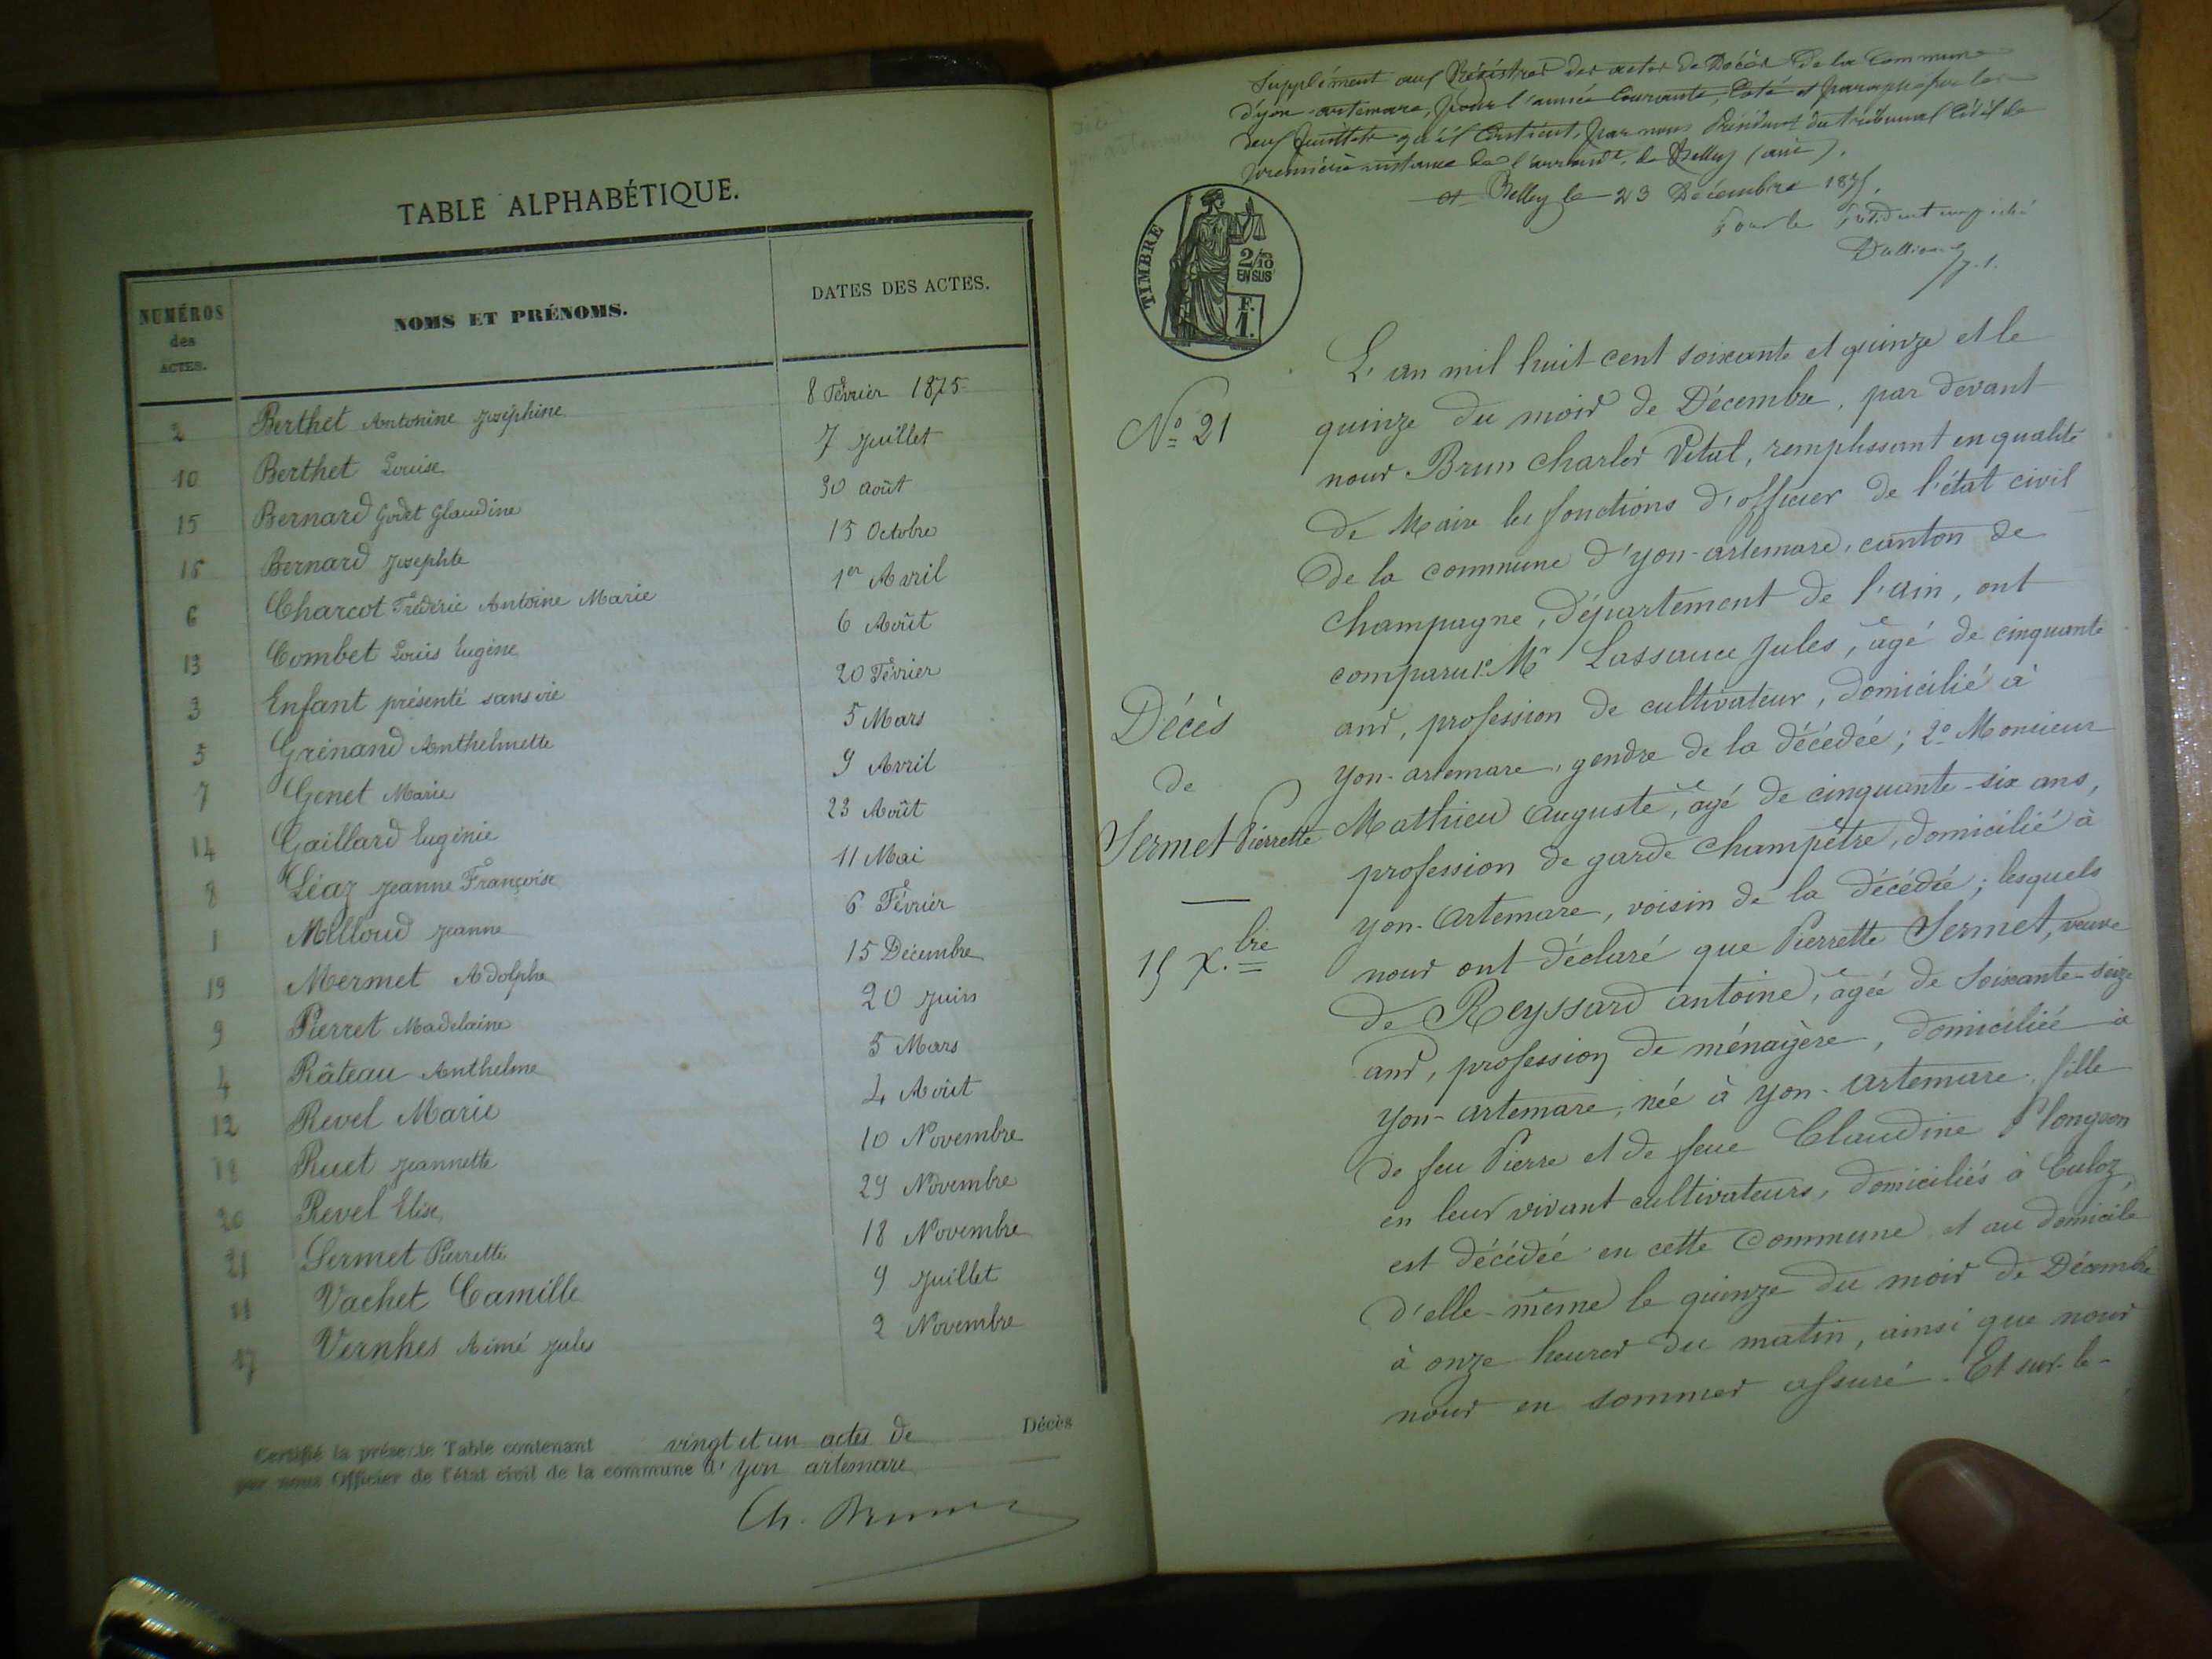 TABLE ALPHABÉTIQUE.
NUMÉROS des ACTES. NOMS ET PRÉNOMS. DATES DES ACTES.
2 Berthet Antonine Joséphine 8 Février 1875
10 Berthet Louise 7 Juillet
15 Bernard Godet Glaudine 30 Août
16 Bernard Josephte 15 Octobre
6 Charcot Frédéric Antoine Marie 1er Avril
13 Combet Louis Eugène 6 Août
3 Enfant présenté sans vie 20 Février
5 Grinand Anthelmette 5 Mars
7 Genet Marie 9 Avril
14 Gaillard Eugénie 23 Août
8 Léaz Jeanne Françoise 11 Mai
1 Milloud Jeanne 6 Février
19 Mermet Adolphe 15 Décembre
9 Pierret Madelaine 20 Juin
4 Râteau Anthelme 5 Mars
12 Revel Marie 4 Août
18 Ruet Jeannette 10 Novembre
20 Revel Elise 29 Novembre
21 Sermet Pierrette 18 Novembre
11 Vachet Camille 9 Juillet
17 Vernhes Aimé Jules 2 Novembre
Certifié la présente Table contenant vingt et un actes de Décès
par nous Officier de l'état civil de la commune d' Yon artemare
Ch. Brun
Supplément aux Régistres des actes de Décès de la Commune
d'yon-artemare, pour l'année Courante, Coté et paraphé par les
deux feuillets qu'il Contient, par nous Président du tribunal Civil de
première instance de l'arrondt. de Belley (ain).
à Belley le 23 Décembre 1875.
Pour le Président empêché
TIMBRE
2/10 EN SUS
F. 1.
L'an mil huit cent soixante et quinze et le
No 21
quinze du mois de Décembre, par devant
nous Brun Charles Vital, remplissant en qualité
de Maire les fonctions d'officier de l'état civil
de la commune d'yon-artemare, canton de
Champagne, département de l'ain, ont
comparu 1e Mr Lassauce Jules, âgé de cinquante
Décès
ans, profession de cultivateur, domicilié à
de
yon-artemare, gendre de la décédée; 2o Monsieur
Sermet Pierrette
Mathieu Auguste, âgé de cinquante-six ans,
profession de garde champêtre, domicilié à
yon-artemare, voisin de la décédée; lesquels
15 X.bre
nous ont déclaré que Pierrette Sermet, veuve
de Reyssard antoine, âgée de soixante-seize
ans, profession de ménagère, domiciliée à
yon-artemare, née à yon-artemare, fille
de feu Pierre et de feue Claudine Plongeon
en leur vivant cultivateurs, domiciliés à Culoz,
est décédée en cette Commune et au domicile
d'elle-même le quinze du mois de Décembre
à onze heures du matin, ainsi que nous
nous en sommes assuré. Et sur-le-